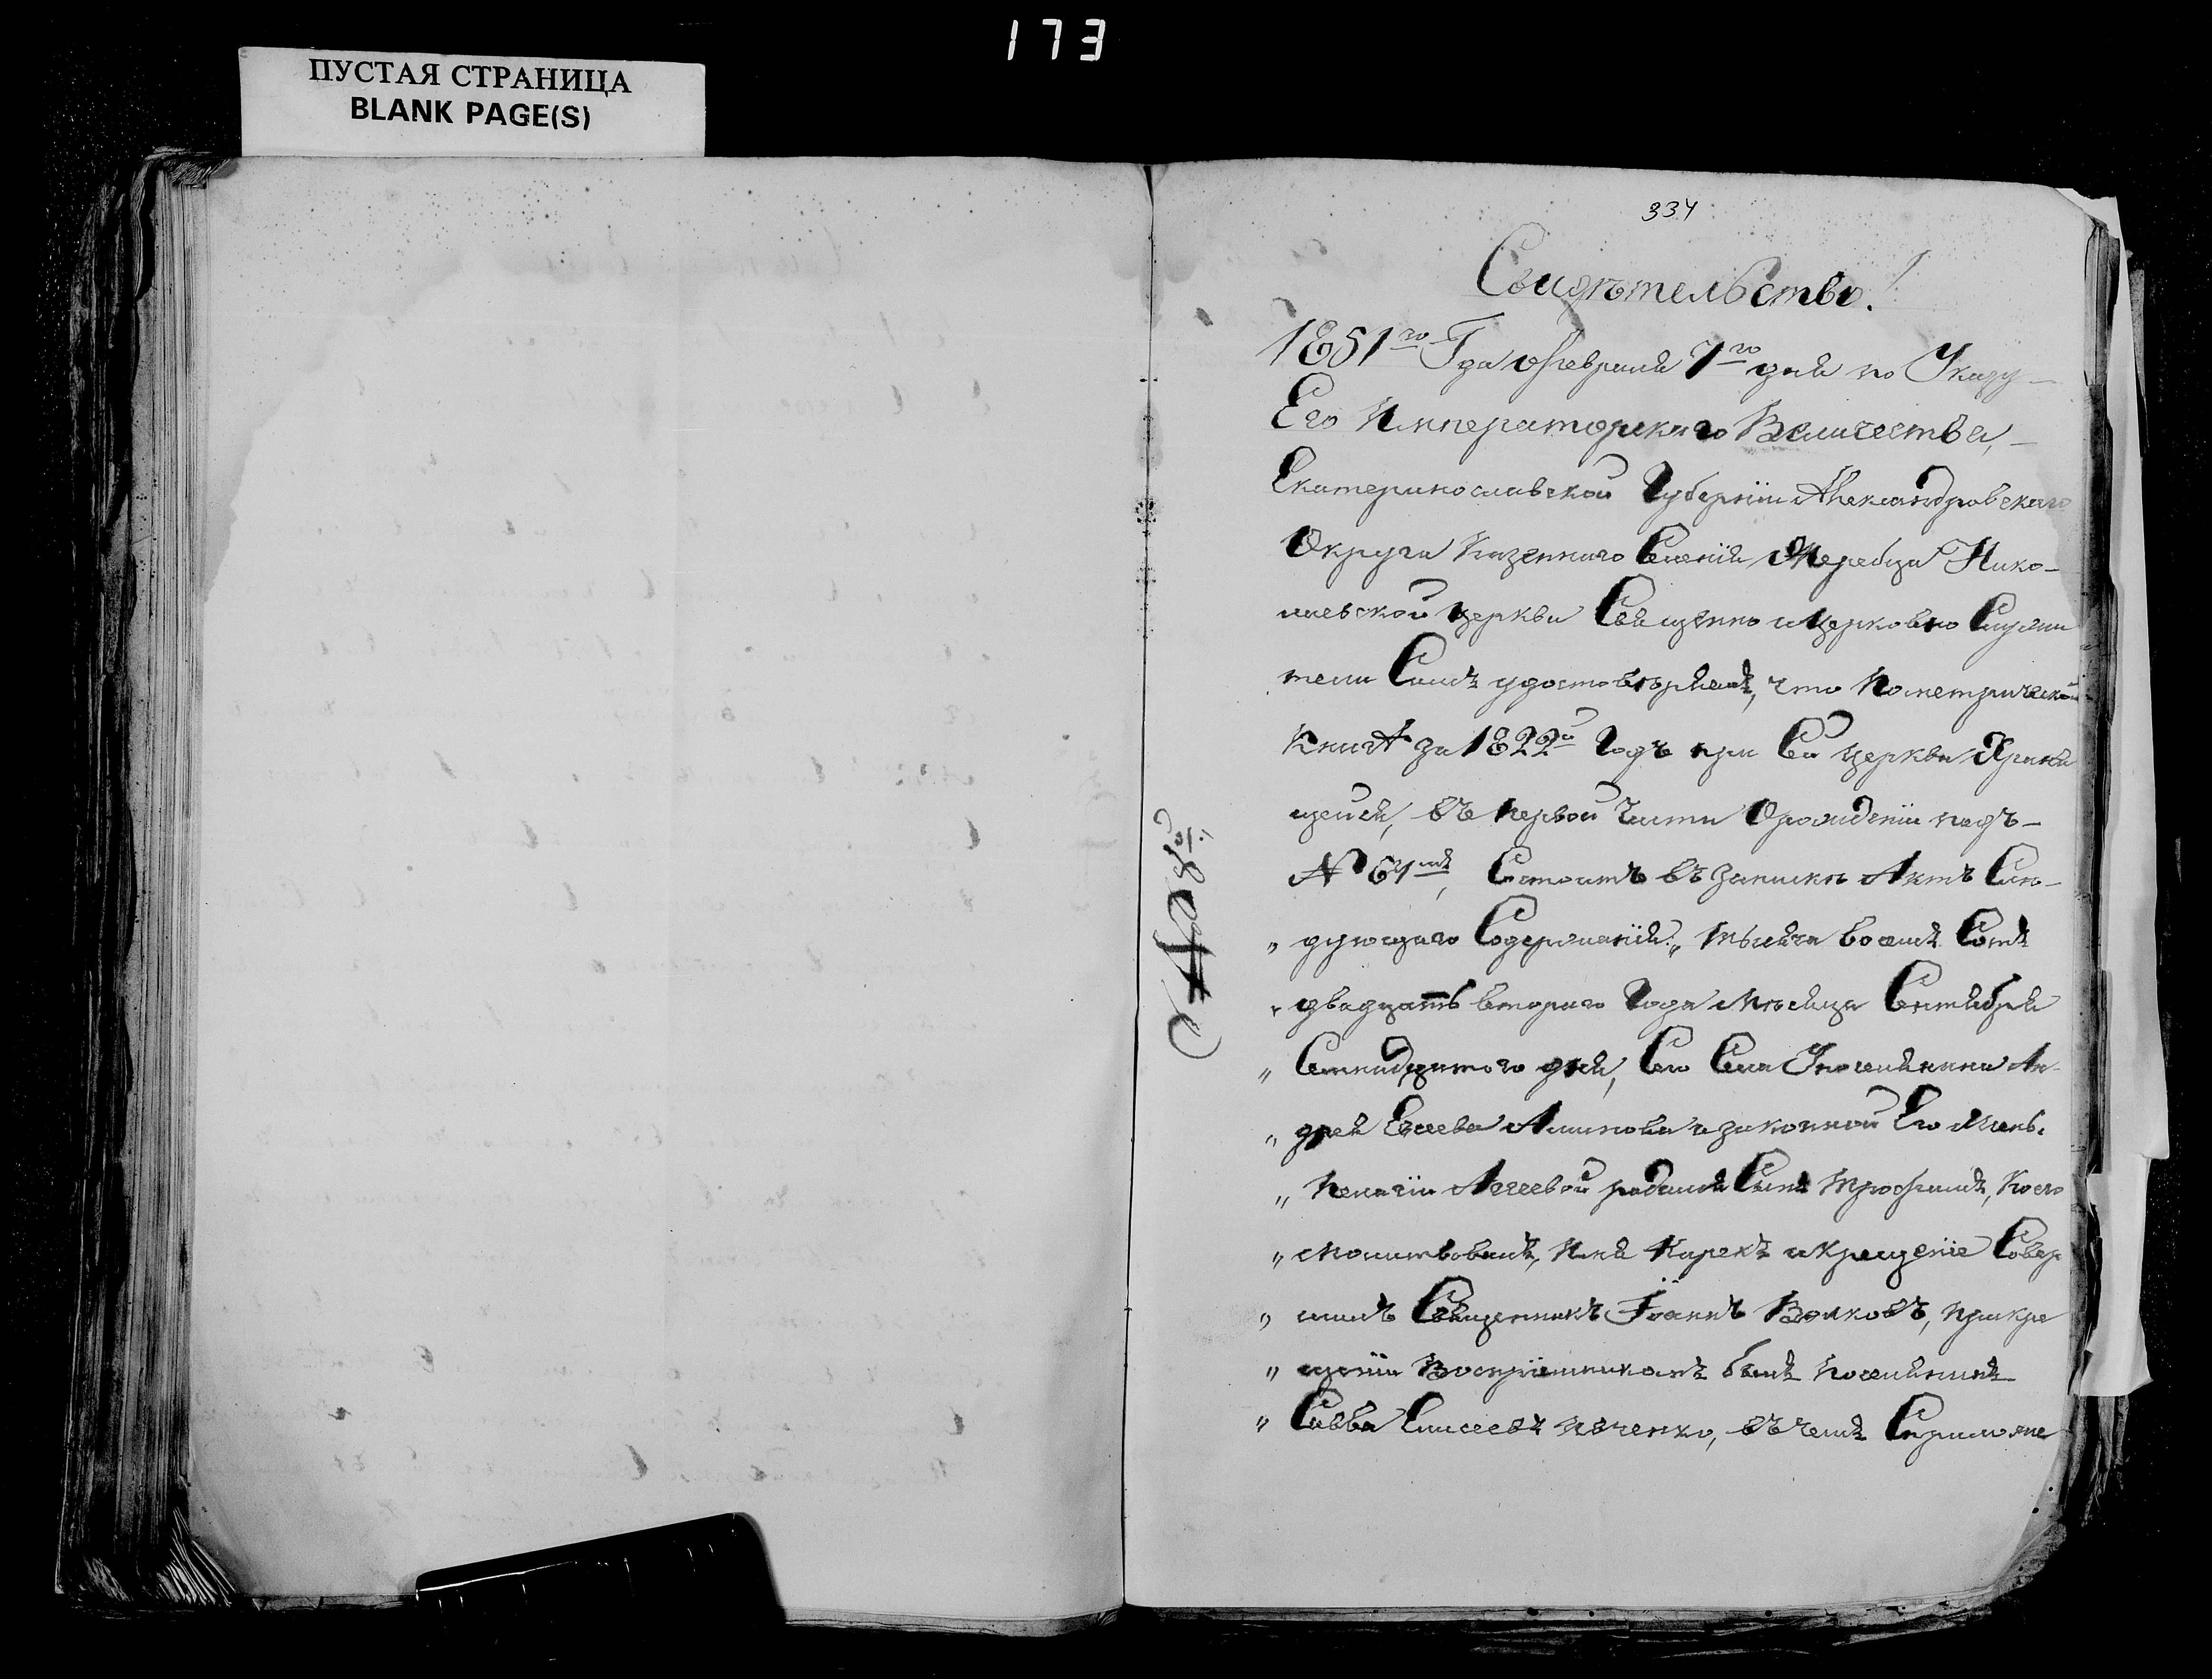 173
ПУСТАЯ СТРАНИЦА
BLANK PAGE(S)
334
Свидѣтельство!
1851го Года Февраля 7го дня по Указу
Его Императорскаго Величества,
Екатеринославской Губерніи Александровскаго
Округа Казеннаго Селенія Жеребца Нико-
лаевской церкви Священно и церковно Служи
тели Симъ удостовѣряемъ, что по метрической
Книгѣ за 1822й Годъ при Сей церкви Храня
щейся, въ первой Части О рожденіи подъ
№ 61мъ, Состоитъ въ запискѣ Актъ Слѣ-
„ дующаго Содержанія: „ тысяча восемъ Сотъ
„ двадцать втораго Года Мѣсяца Сентября
„ дня, Сего Села Поселянина Ан-
„ дрея Евсеева и законной Его Жены
„ Пелагіи родился Сынъ Трофимъ, Коего
„ Молитвовалъ, Имя Нарекъ и Крещеніе Совер
„ шилъ Священникъ Іоаннъ Волковъ, при кре
„ щеніи Воспріемникомъ былъ Поселянинъ
„ Савва Елисеевъ въ чемъ С приложе